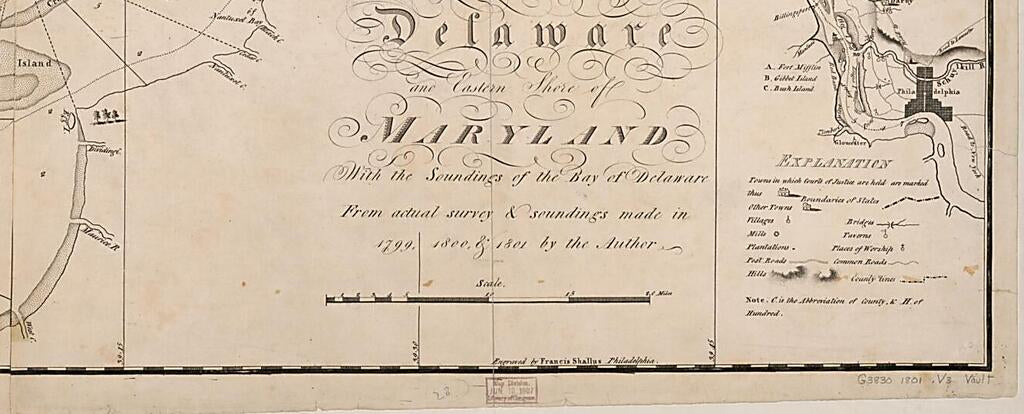 Delaware
and Eastern Shore of
MARYLAND
With the Soundings of the Bay of Delaware
From actual survey & soundings made in
1799, 1800, & 1801 by the Author
Scale.
5
10
15
20 Miles
Engraved by Francis Shallus Philadelphia.
Island
Nantuxet Bay
Nantuxet C.
Dividing C.
Maurice R.
2
2
2
39.15
39.30
39.45
Billingsport
Darby
A. Fort Mifflin
B. Gibbet Island
C. Bush Island
Schuylkill R.
Philadelphia
Gloucester
EXPLANATION
Towns in which Courts of Justice are held are marked
thus
Boundaries of States
Other Towns
Villages
Bridges
Mills
Taverns
Plantations
Places of Worship
Post Roads
Common Roads
Hills
County lines
Note. C. is the Abbreviation of County, & H. of
Hundred.
Map Division
Library of Congress
G3830 1801 .V3 Vault